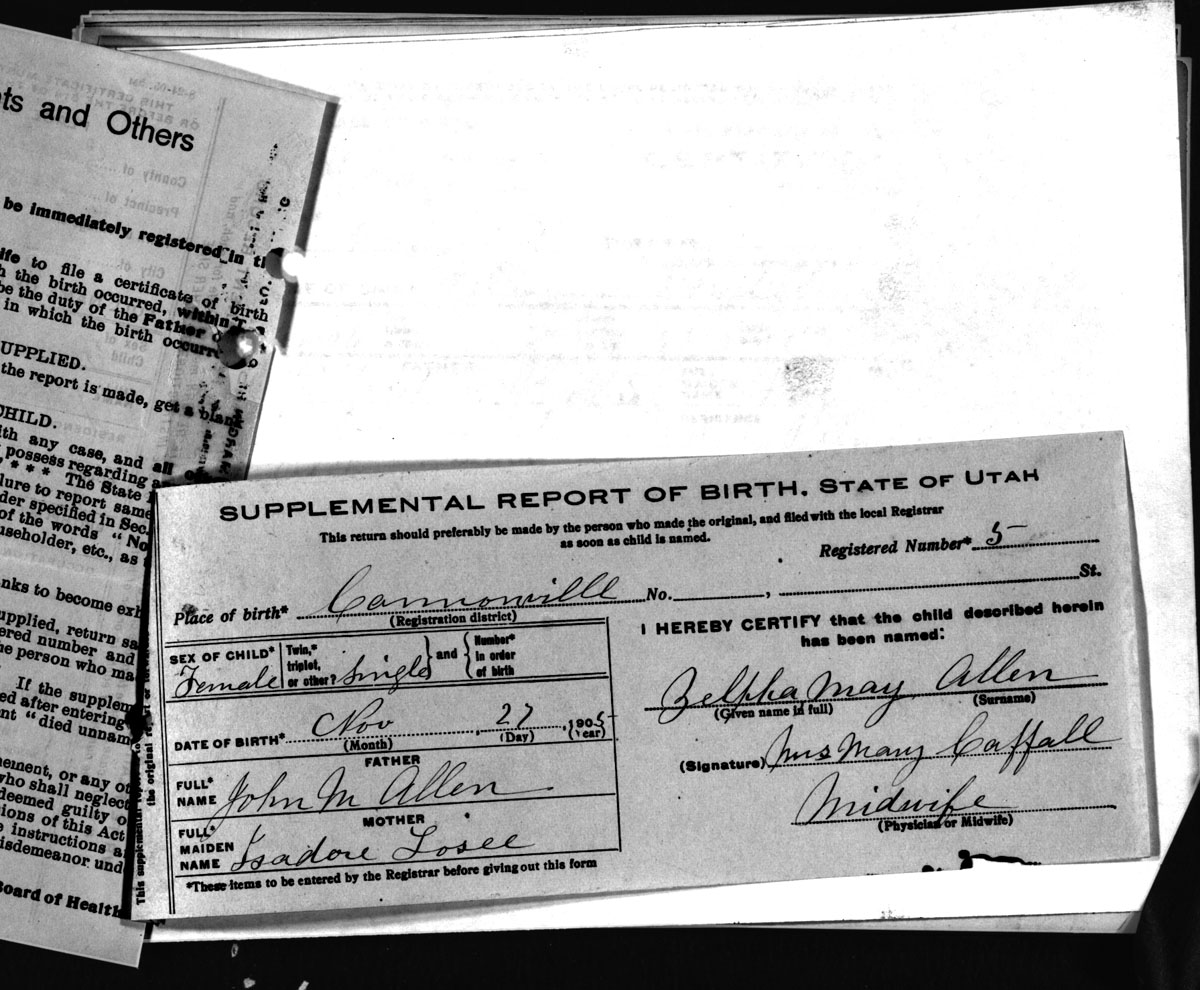 ts and Others
be immediately registered in
ife to file a certificate of birth
h the birth occurred, within
be the duty of the Father
in which the birth
UPPLIED.
the report is made, get a blank
CHILD.
ith any case, and all
possess regarding
* * * The State
lure to report same
der specified in Sec.
of the words "No
useholder, etc., as
nks to become exh
upplied, return sa
ered number and
he person who ma
If the supplem
ed after entering
nt "died unnam
nement, or any ot
who shall neglect
deemed guilty o
sions of this Act
e instructions a
isdemeanor und
Board of Health
SUPPLEMENTAL REPORT OF BIRTH. STATE OF UTAH
This return should preferably be made by the person who made the original, and filed with the local Registrar
as soon as child is named.
Registered Number* 5
Place of birth* Cannonville No. , St.
(Registration district)
SEX OF CHILD* Female
Twin,* triplet, or other? Single } and { Number* in order of birth
DATE OF BIRTH* Nov , 27 , 1905
(Month) (Day) (Year)
FATHER
FULL* NAME John M Allen
MOTHER
FULL* MAIDEN NAME Isadore Losee
*These items to be entered by the Registrar before giving out this form
I HEREBY CERTIFY that the child described herein
has been named:
Zelpha May Allen
(Given name in full) (Surname)
(Signature) Mrs Mary Caffall
Midwife
(Physician or Midwife)
This supplemental report
the original